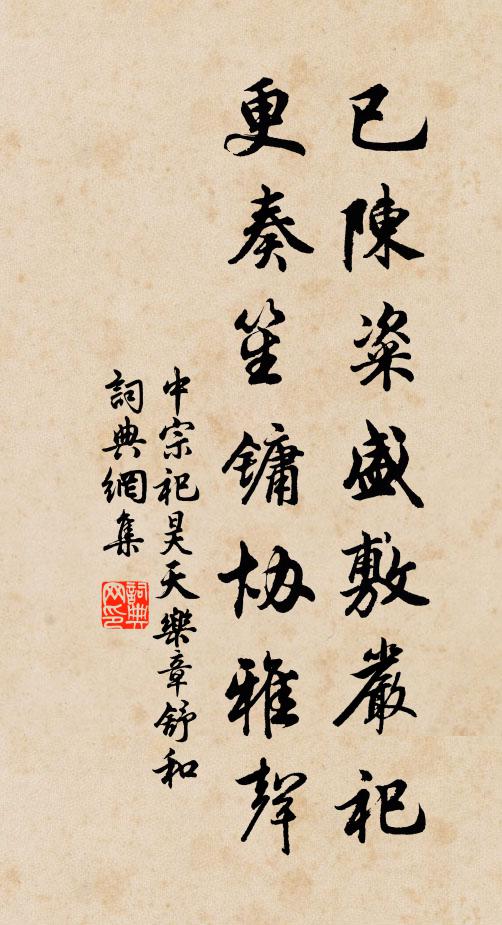 已陳粢盛敷嚴祀
更奏笙鏞協雅聲
中宗祀昊天樂章舒和
詞典網集
詞典网印